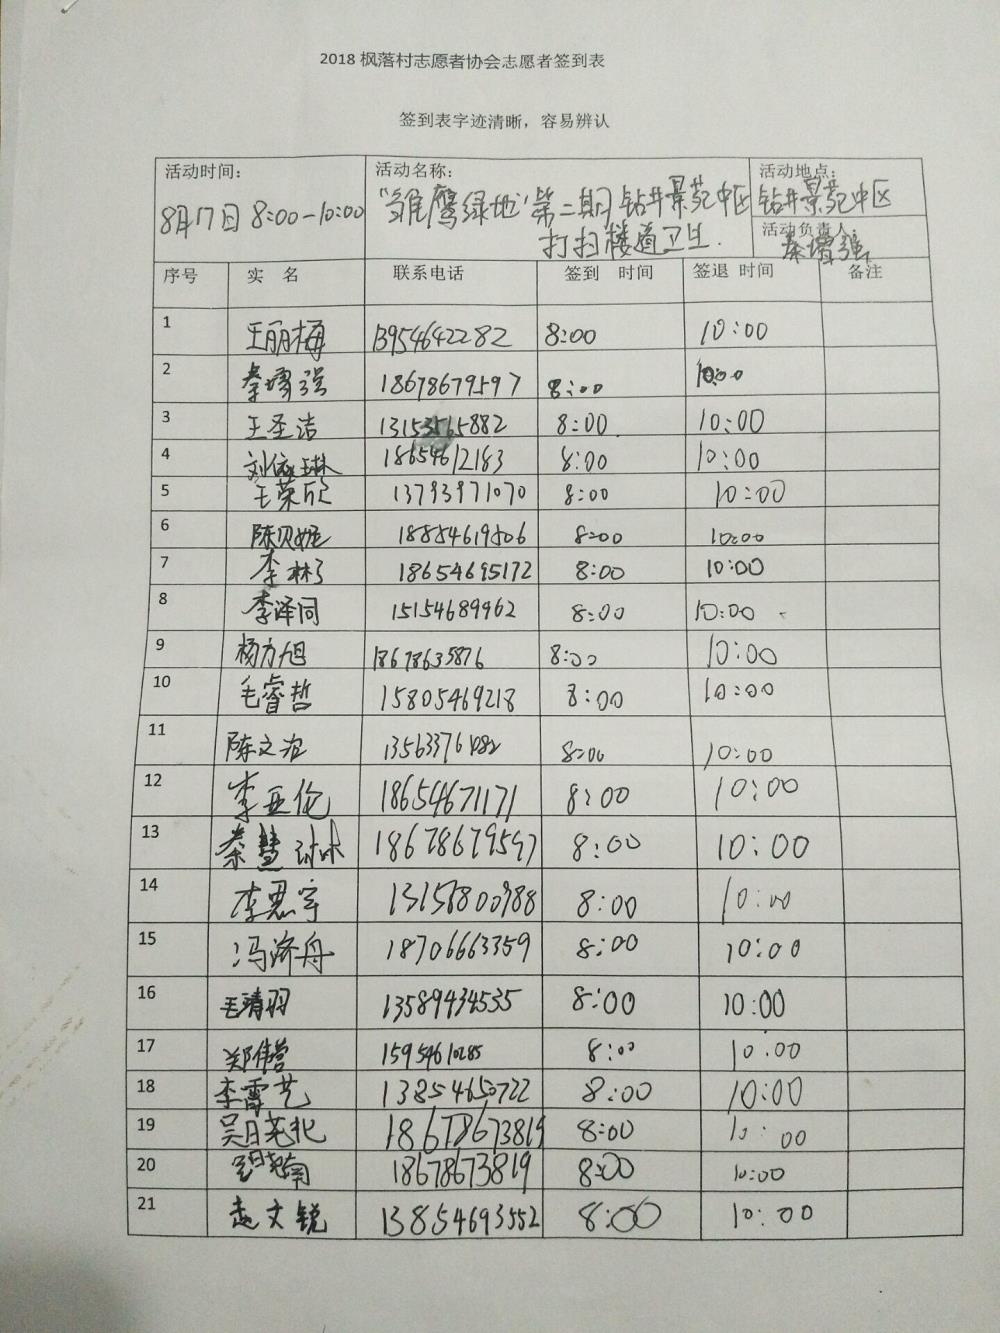 2018 枫落村志愿者协会志愿者签到表
签到表字迹清晰，容易辨认
活动时间： 活动名称： 活动地点：
8月17日 8:00-10:00 "雏鹰绿地"第二期钻井景苑中区 钻井景苑中区
打扫楼道卫生. 活动负责人
秦增强
序号 实 名 联系电话 签到 时间 签退 时间 备注
1 王丽梅 13954642282 8:00 10:00
2 秦增强 18678679597 8:00 10:00
3 王圣洁 13153565882 8:00 10:00
4 刘依琳 18654612183 8:00 10:00
5 王荣欣 13793971070 8:00 10:00
6 陈贝妮 18854619506 8:00 10:00
7 李 18654695172 8:00 10:00
8 李泽同 15154689962 8:00 10:00
9 杨力旭 18678635876 8:00 10:00
10 毛睿哲 15805469218 8:00 10:00
11 陈文 8:00 10:00
12 李亚伦 18654671171 8:00 10:00
13 秦慧 18678679597 8:00 10:00
14 李思宇 8:00 10:00
15 冯济舟 18706663359 8:00 10:00
16 毛清羽 13589434535 8:00 10:00
17 郑伟营 15954610285 8:00 10:00
18 李雪艺 13854650722 8:00 10:00
19 吴日 18678673819 8:00 10:00
20 18678673819 8:00 10:00
21 赵文锐 13854693552 8:00 10:00